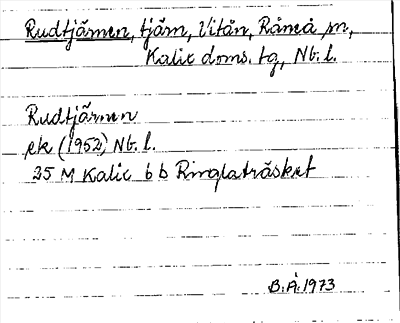 Rudtjärnen, tjärn, Vitån, Råneå sn,
Kalix doms. tg, Nb. l.
Rudtjärnen
ek (1952) Nb. l.
25 M Kalix 6 b Ringlaträsket
B.Å. 1973